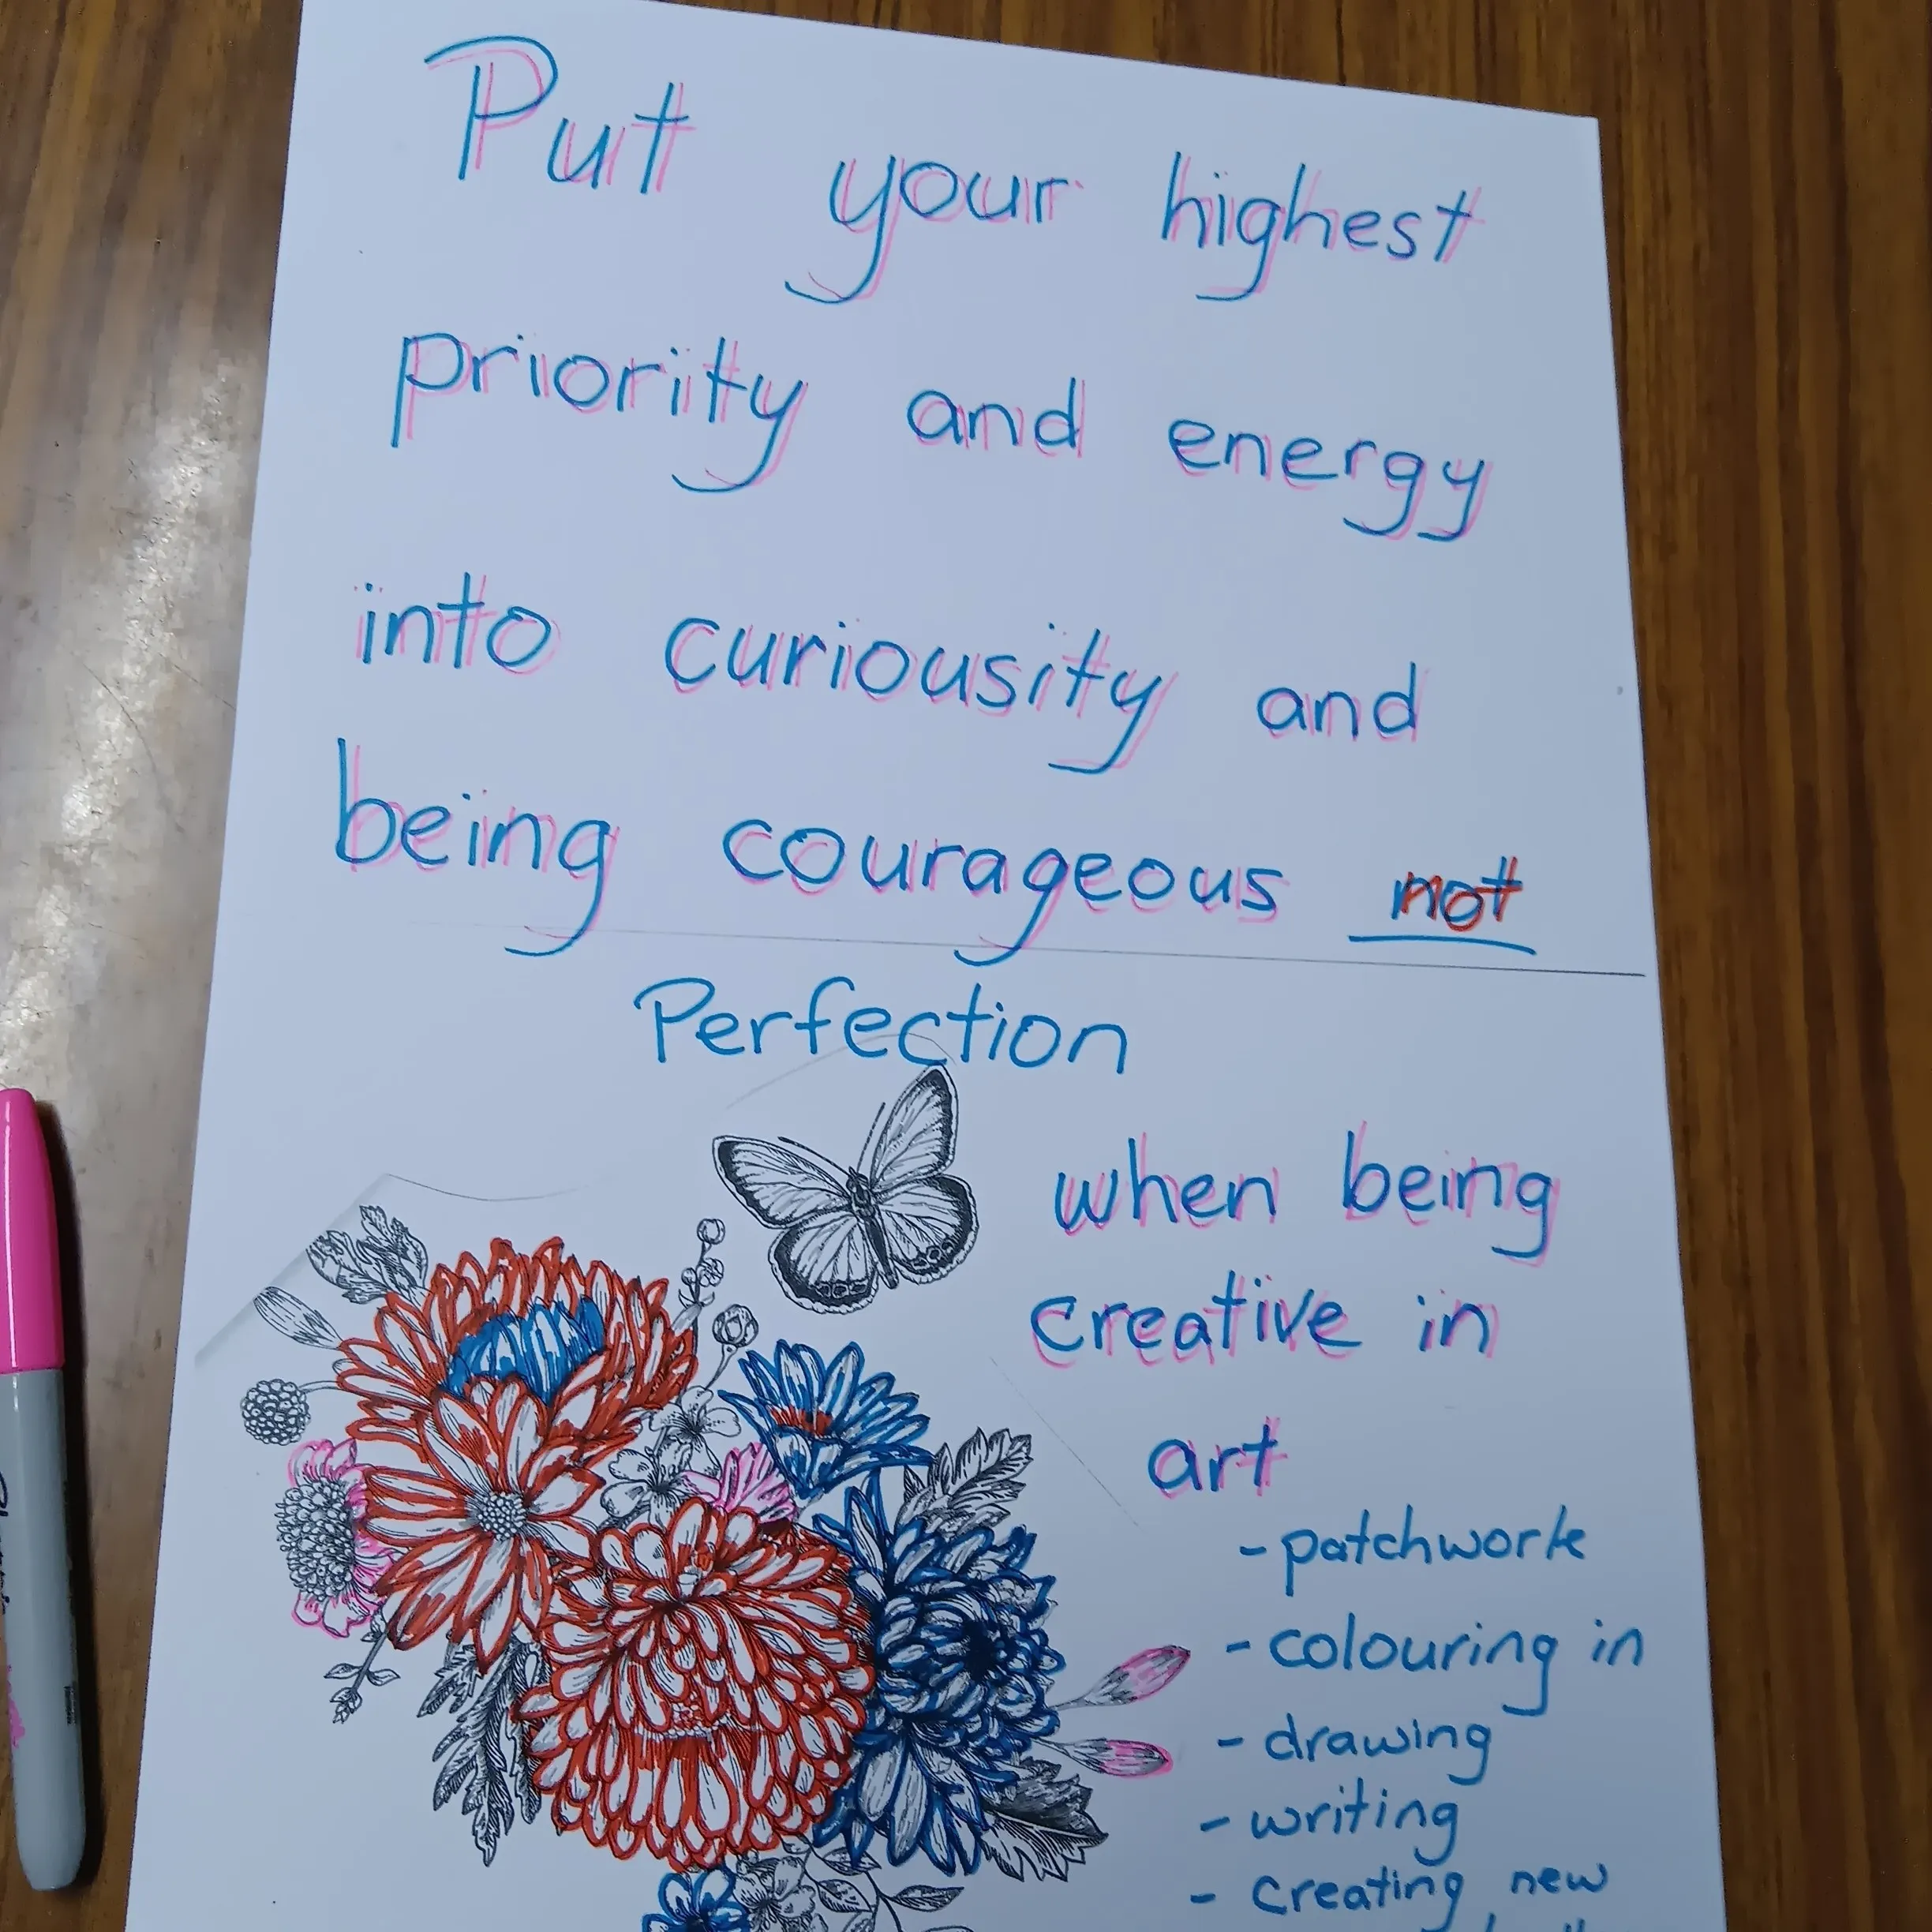 Put your highest
priority and energy
into curiousity and
being courageous not
Perfection
when being
creative in
art
- patchwork
- colouring in
- drawing
- writing
- creating new